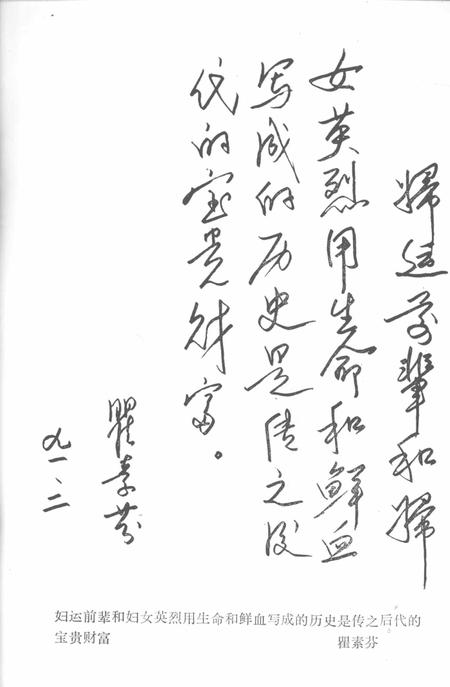 婦运前輩和婦
女英烈用生命和鲜血
写成的历史是传之后
代的宝贵财富。
瞿素芬
九一.二
妇运前辈和妇女英烈用生命和鲜血写成的历史是传之后代的
宝贵财富
瞿素芬